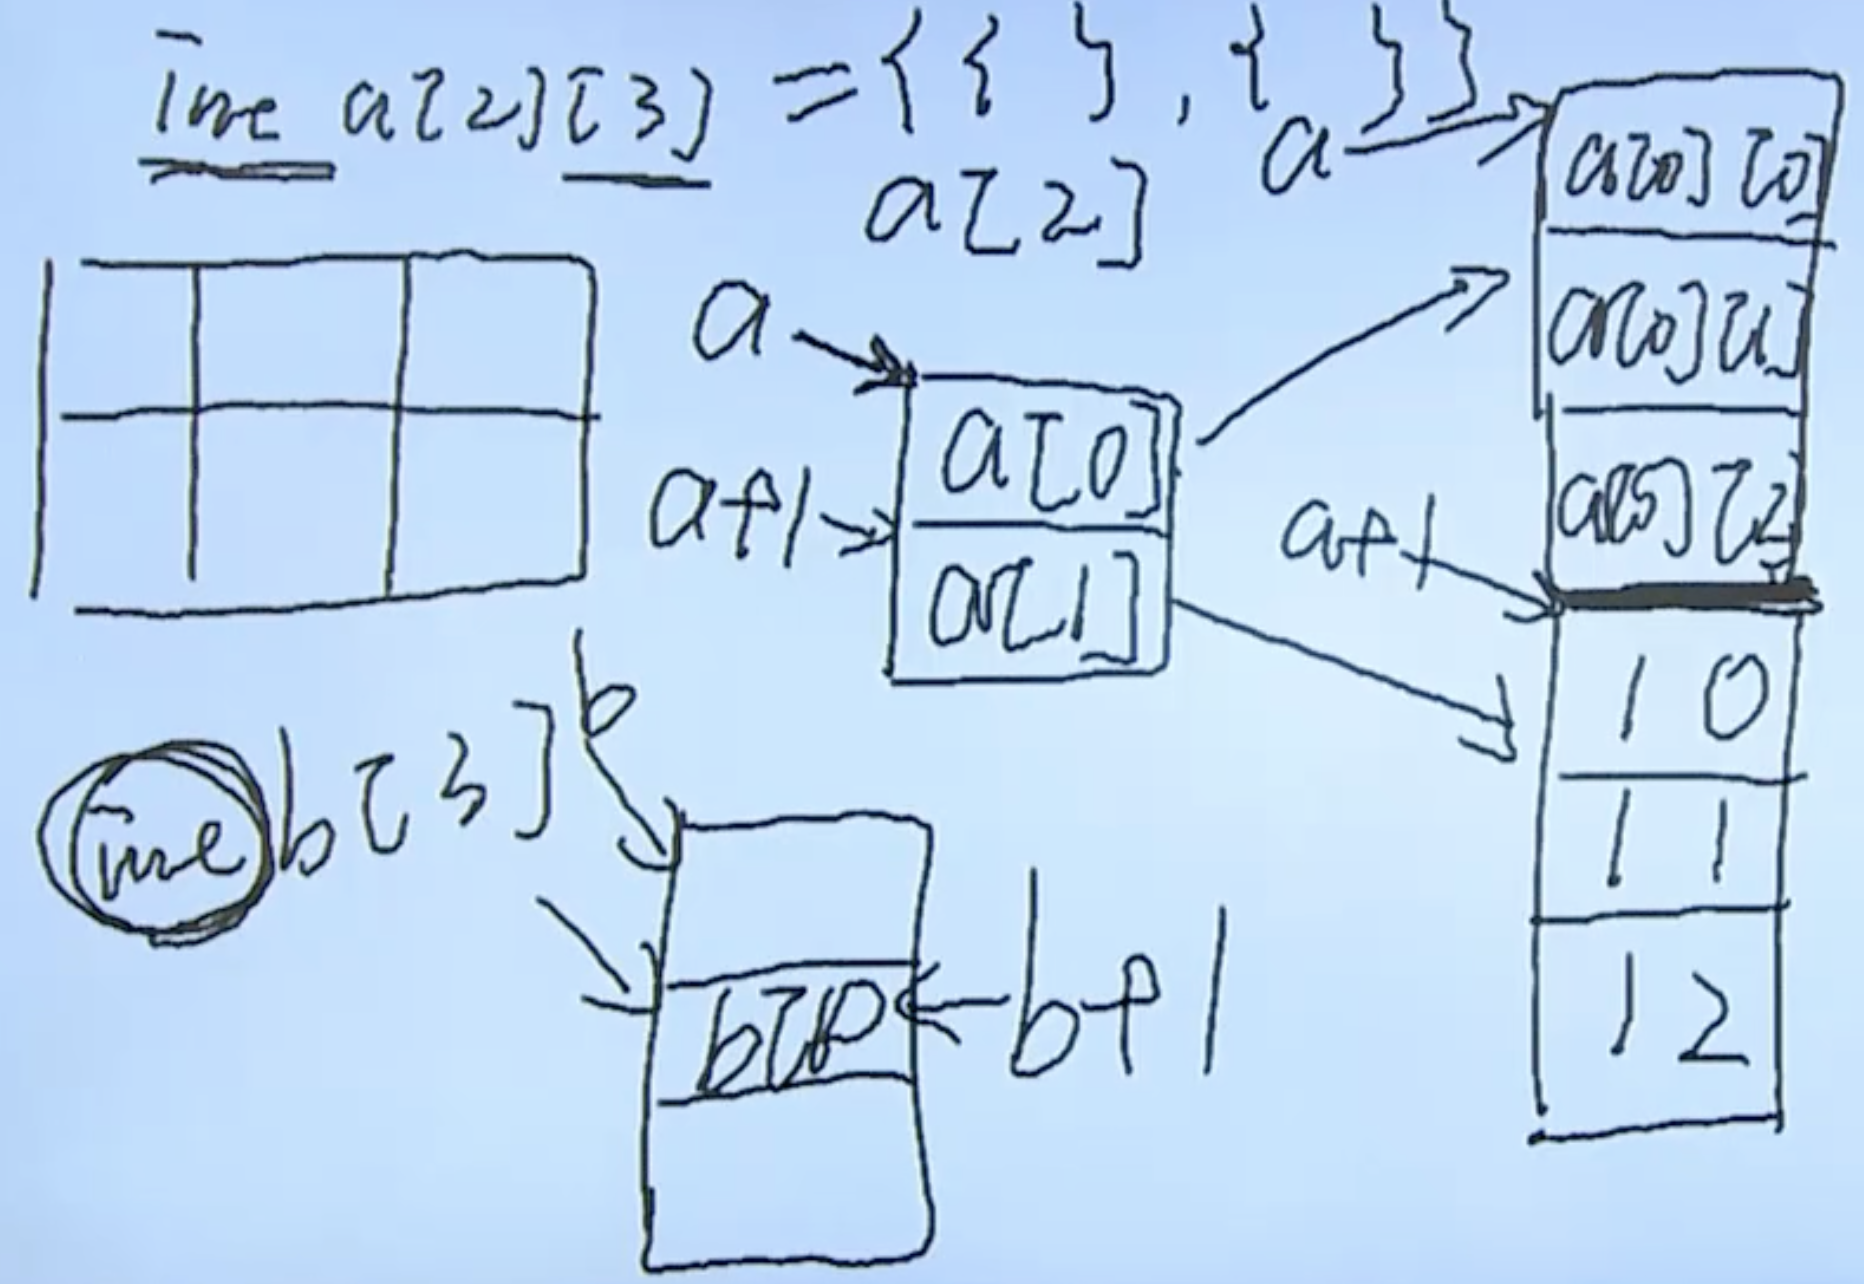 int a[2][3] = { { } , { } }
a[2]
a
a[0][0]
a[0][1]
a[0][2]
a
a[0]
a+1
a[1]
a+1
1 0
1 1
1 2
int b[3]
b
b[1]
b+1